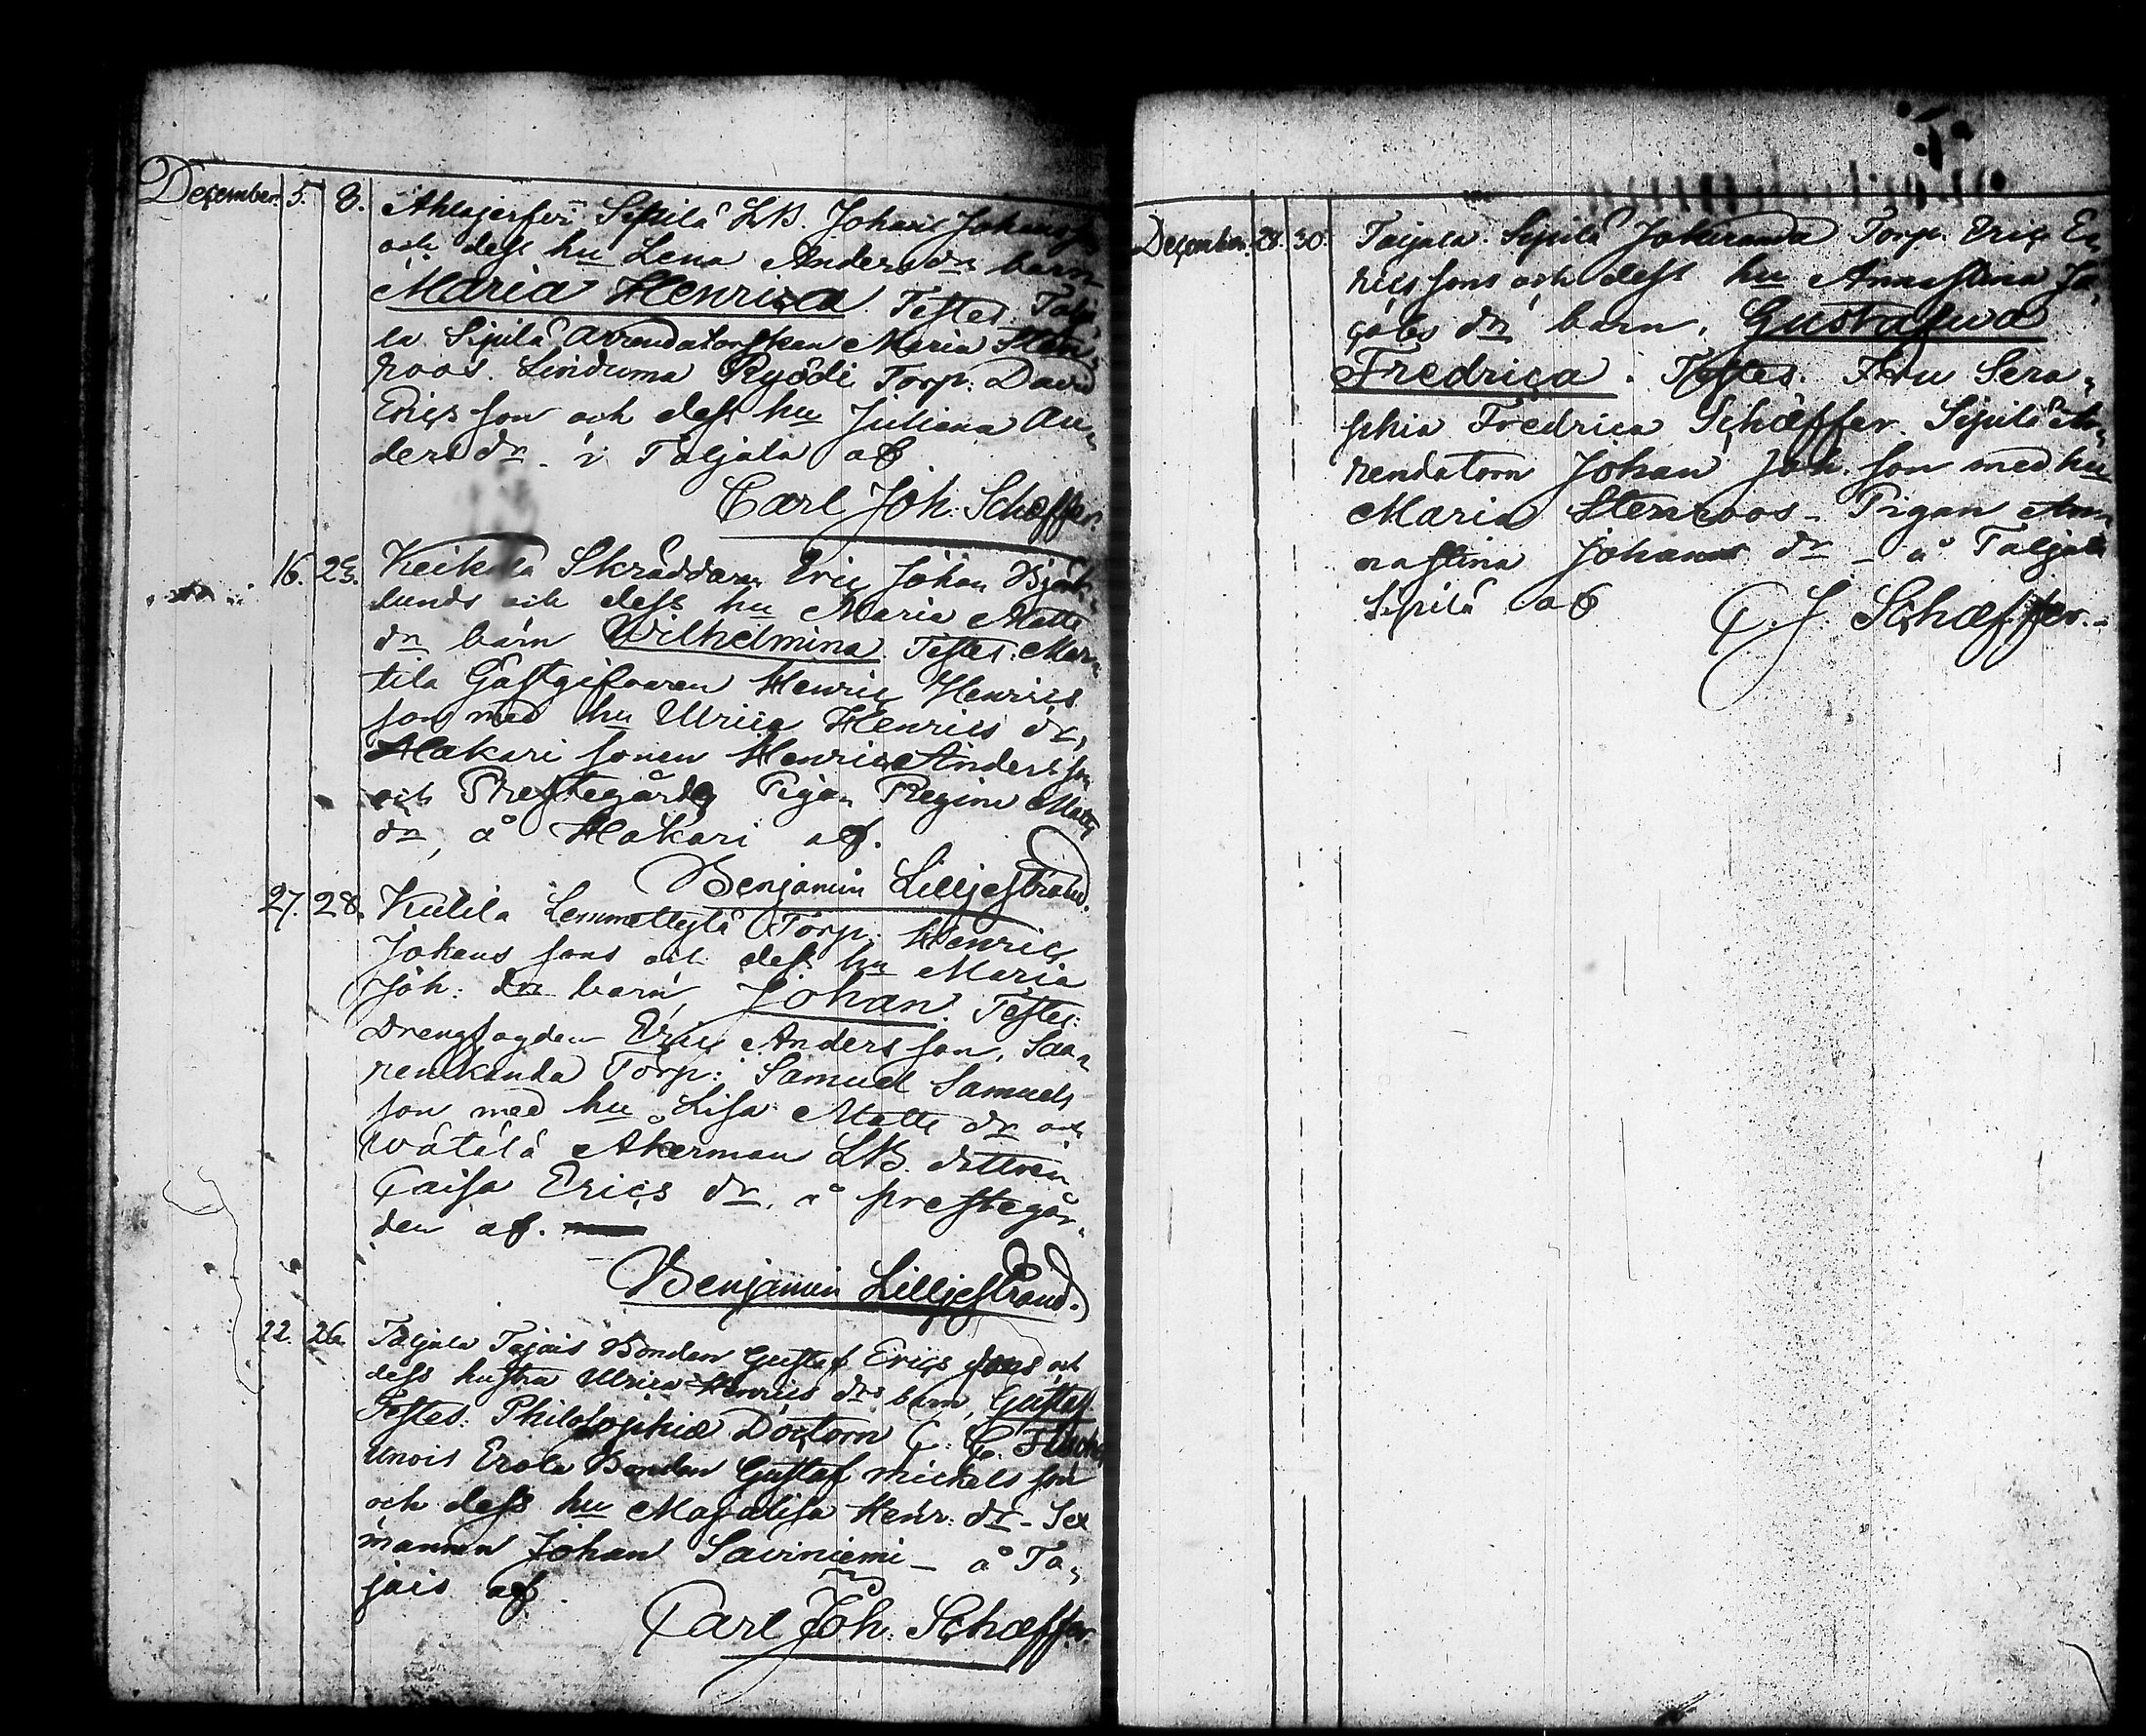 December. 5. 8. Ahlajerfwi Sipilä LB. Johan Johansson
och dess hu Lena Anders dr barn
Maria Henrica. Testes. Talja-
la Sipilä Arrendatorskan Maria Sten-
roos. Linduma Ryödi Torp. David
Erics son och dess hu Juliana An-
ders dr. i Taljala af
Carl Joh: Schæffer.
16. 23. Keikala Skräddaren Eric Johan Björk-
lunds och dess hu Maria Matts
dr barn Wilhelmina. Testes. Mar-
tila Gästgifvaren Henric Henrics
son med hu Ulrica Henrics dr,
Hakari sonen Henric Anders son
och Prestegårds Pigan Regina Matts
dr, å Hakari af.
Benjamin Lilljestrand.
27. 28. Kutila Lemmettylä Torp. Henric
Johans sons och dess hu Maria
Joh: dr barn, Johan. Testes:
Drengfogden Eric Anders son, Saa-
renkanda Torp: Samuel Samuels
son med hu Lisa Matts dr och
wätilä Åkerman LB. dottren
Caisa Erics dr. å prestegår-
den af.
Benjamin Lilljestrand.
22. 26. Taljala Tajais Bonden Gustaf Erics sons och
dess hustru Ulrica Henrics drs barn, Gustaf.
Testes: Philosophiæ Doctorn C. C.
Unois Erola Bonden Gustaf Mickels son
och dess hu Majalisa Henr: dr - Sex
mannen Johan Saviniemi - å Ta-
jais af.
Carl Joh: Schæffer
December. 28. 30. Taljala. Sipilä Jokiranda Torp. Eric E-
rics sons och dess hu Annastina Ja-
cobs dr barn, Gustafwa
Fredrica. Testes. Fru Sera-
phia Fredrica Schæffer. Sipilä Ar-
rendatorn Johan Joh. son med hu
Maria Stenroos - Pigan An-
nastina Johans dr - å Taljala
Sipilä af C. J. Schæffer.